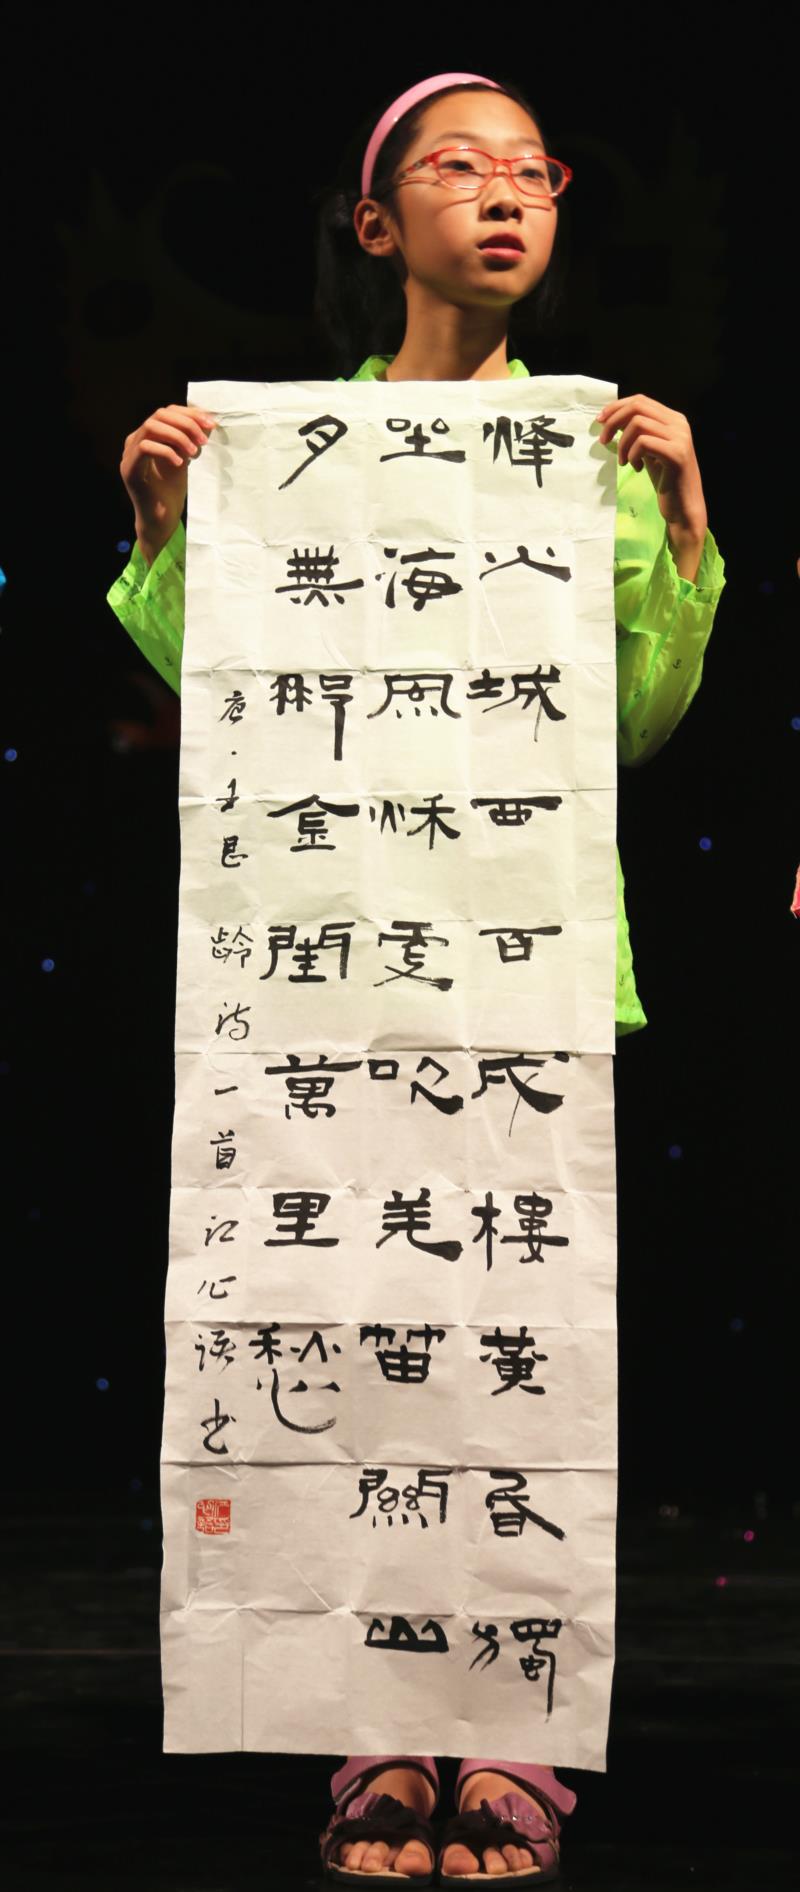 烽火城西百戍樓黃昏獨
坐海風秌雯吹羌笛關山
月無那金閨萬里愁
唐·王昌齡詩一首江心語书